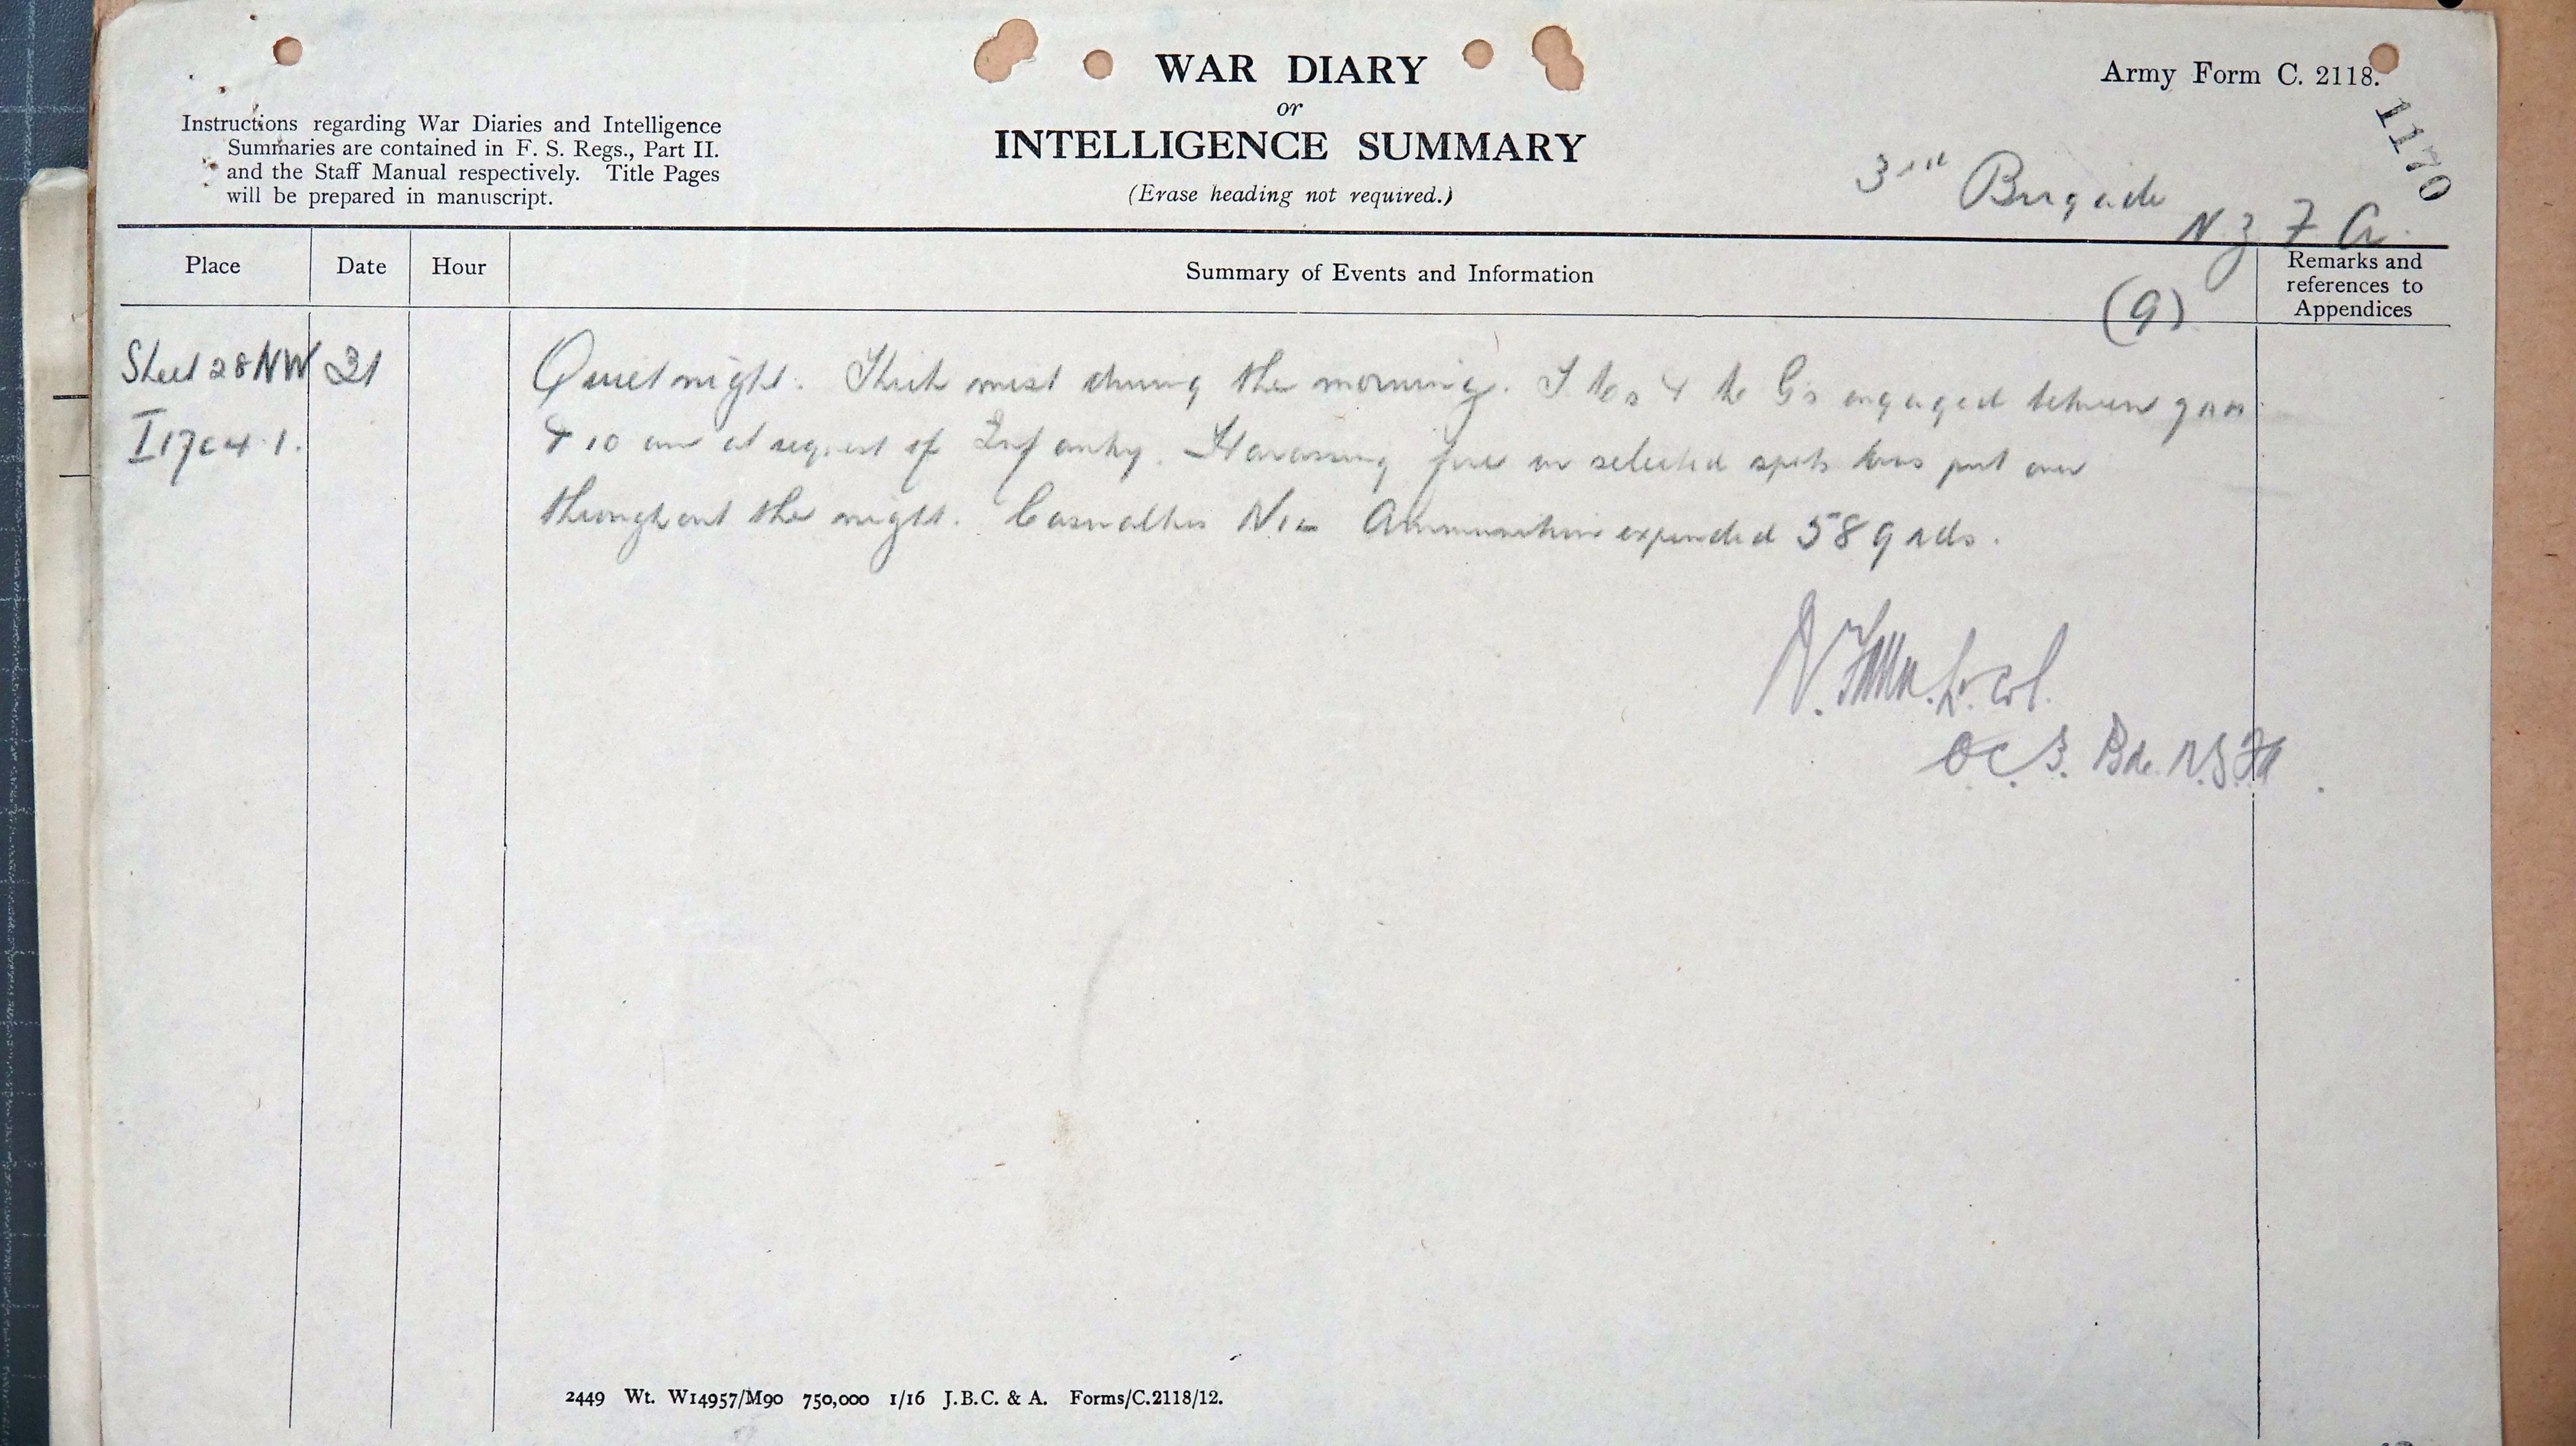 WAR DIARY
or
INTELLIGENCE SUMMARY
(Erase heading not required.)
Army Form C. 2118.
1170
Instructions regarding War Diaries and Intelligence
Summaries are contained in F. S. Regs., Part II.
and the Staff Manual respectively. Title Pages
will be prepared in manuscript.
3rd Brigade
N Z F A.
Place
Date
Hour
Summary of Events and Information
Remarks and
references to
Appendices
(9)
Sheet 28NW
I17c4.1.
21
Quiet night. Thick mist during the morning. & engaged between 9 am
& 10 am at request of Infantry. Harassing fire on selected spots was put over
throughout the night. Casualties Nil Ammunition expended 589 rds.
Lt. Col.
O.C. 3. Bde. N.Z.FA.
2449 Wt. W14957/M90 750,000 1/16 J.B.C. & A. Forms/C.2118/12.